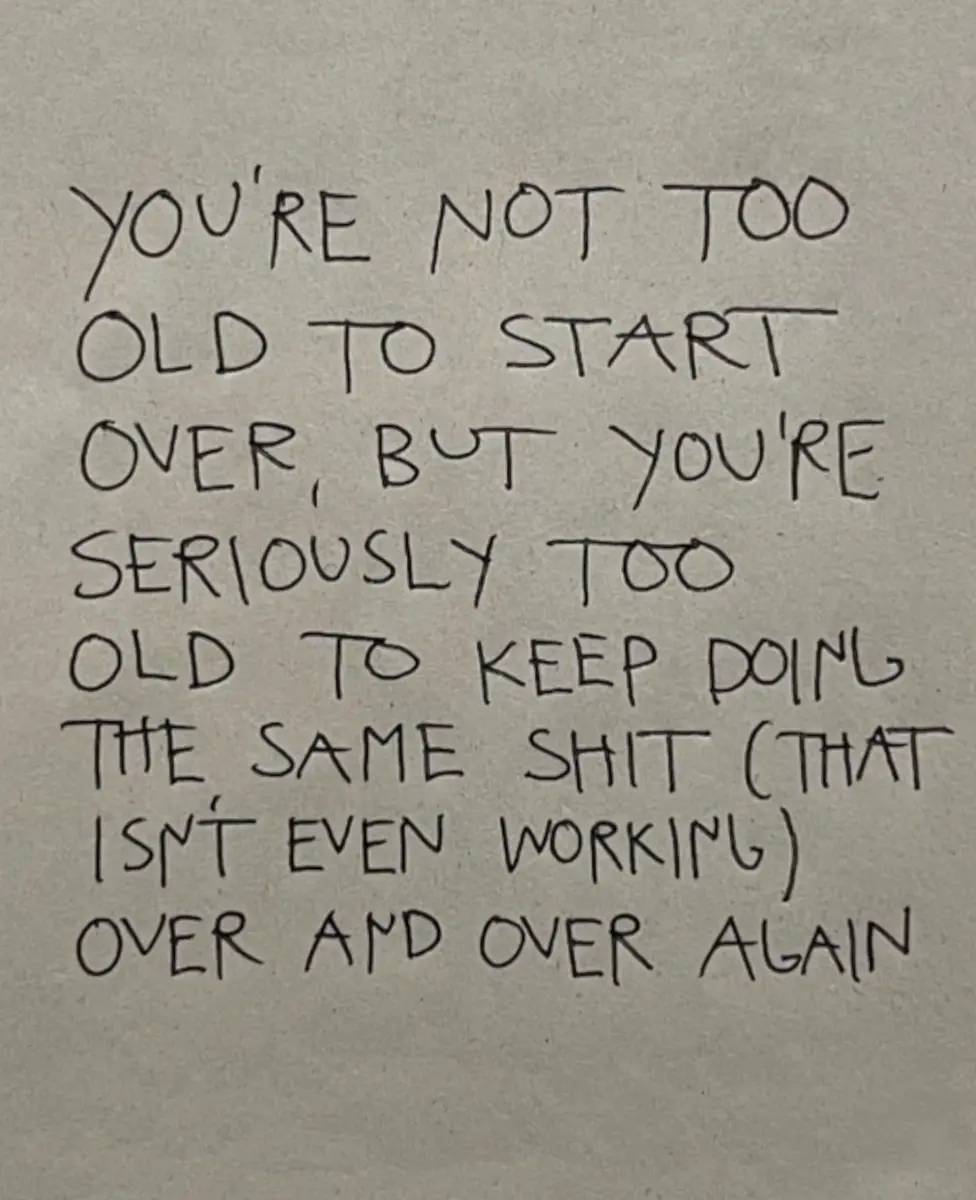 YOU'RE NOT TOO
OLD TO START
OVER, BUT YOU'RE
SERIOUSLY TOO
OLD TO KEEP DOING
THE SAME SHIT (THAT
ISN'T EVEN WORKING)
OVER AND OVER AGAIN